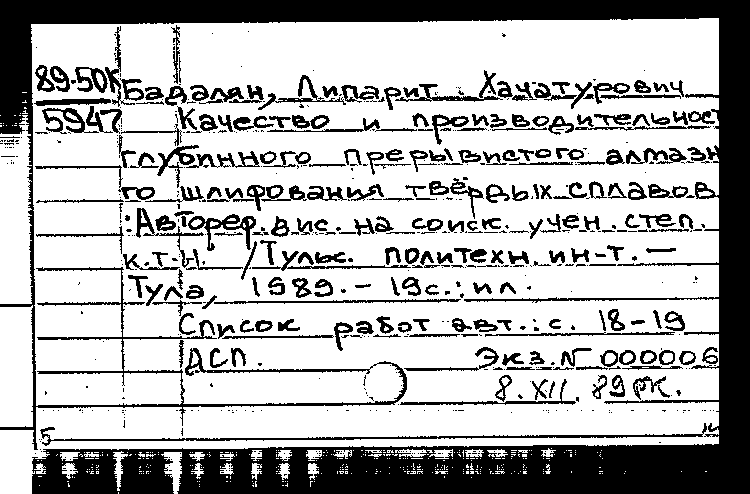 89-50К Бадалян, Липарит Хачатурович
5947 Качество и производительност
глубинного прерывистого алмазн
го шлифования твёрдых сплавов
: Автореф. дис. на соиск. учен. степ.
к.т.н. /Тульс. политехн. ин-т. —
Тула, 1989. - 19с.: ил.
Список работ авт.: с. 18-19
ДСП. Экз. N 000006
8.XII. 89 РК.
5